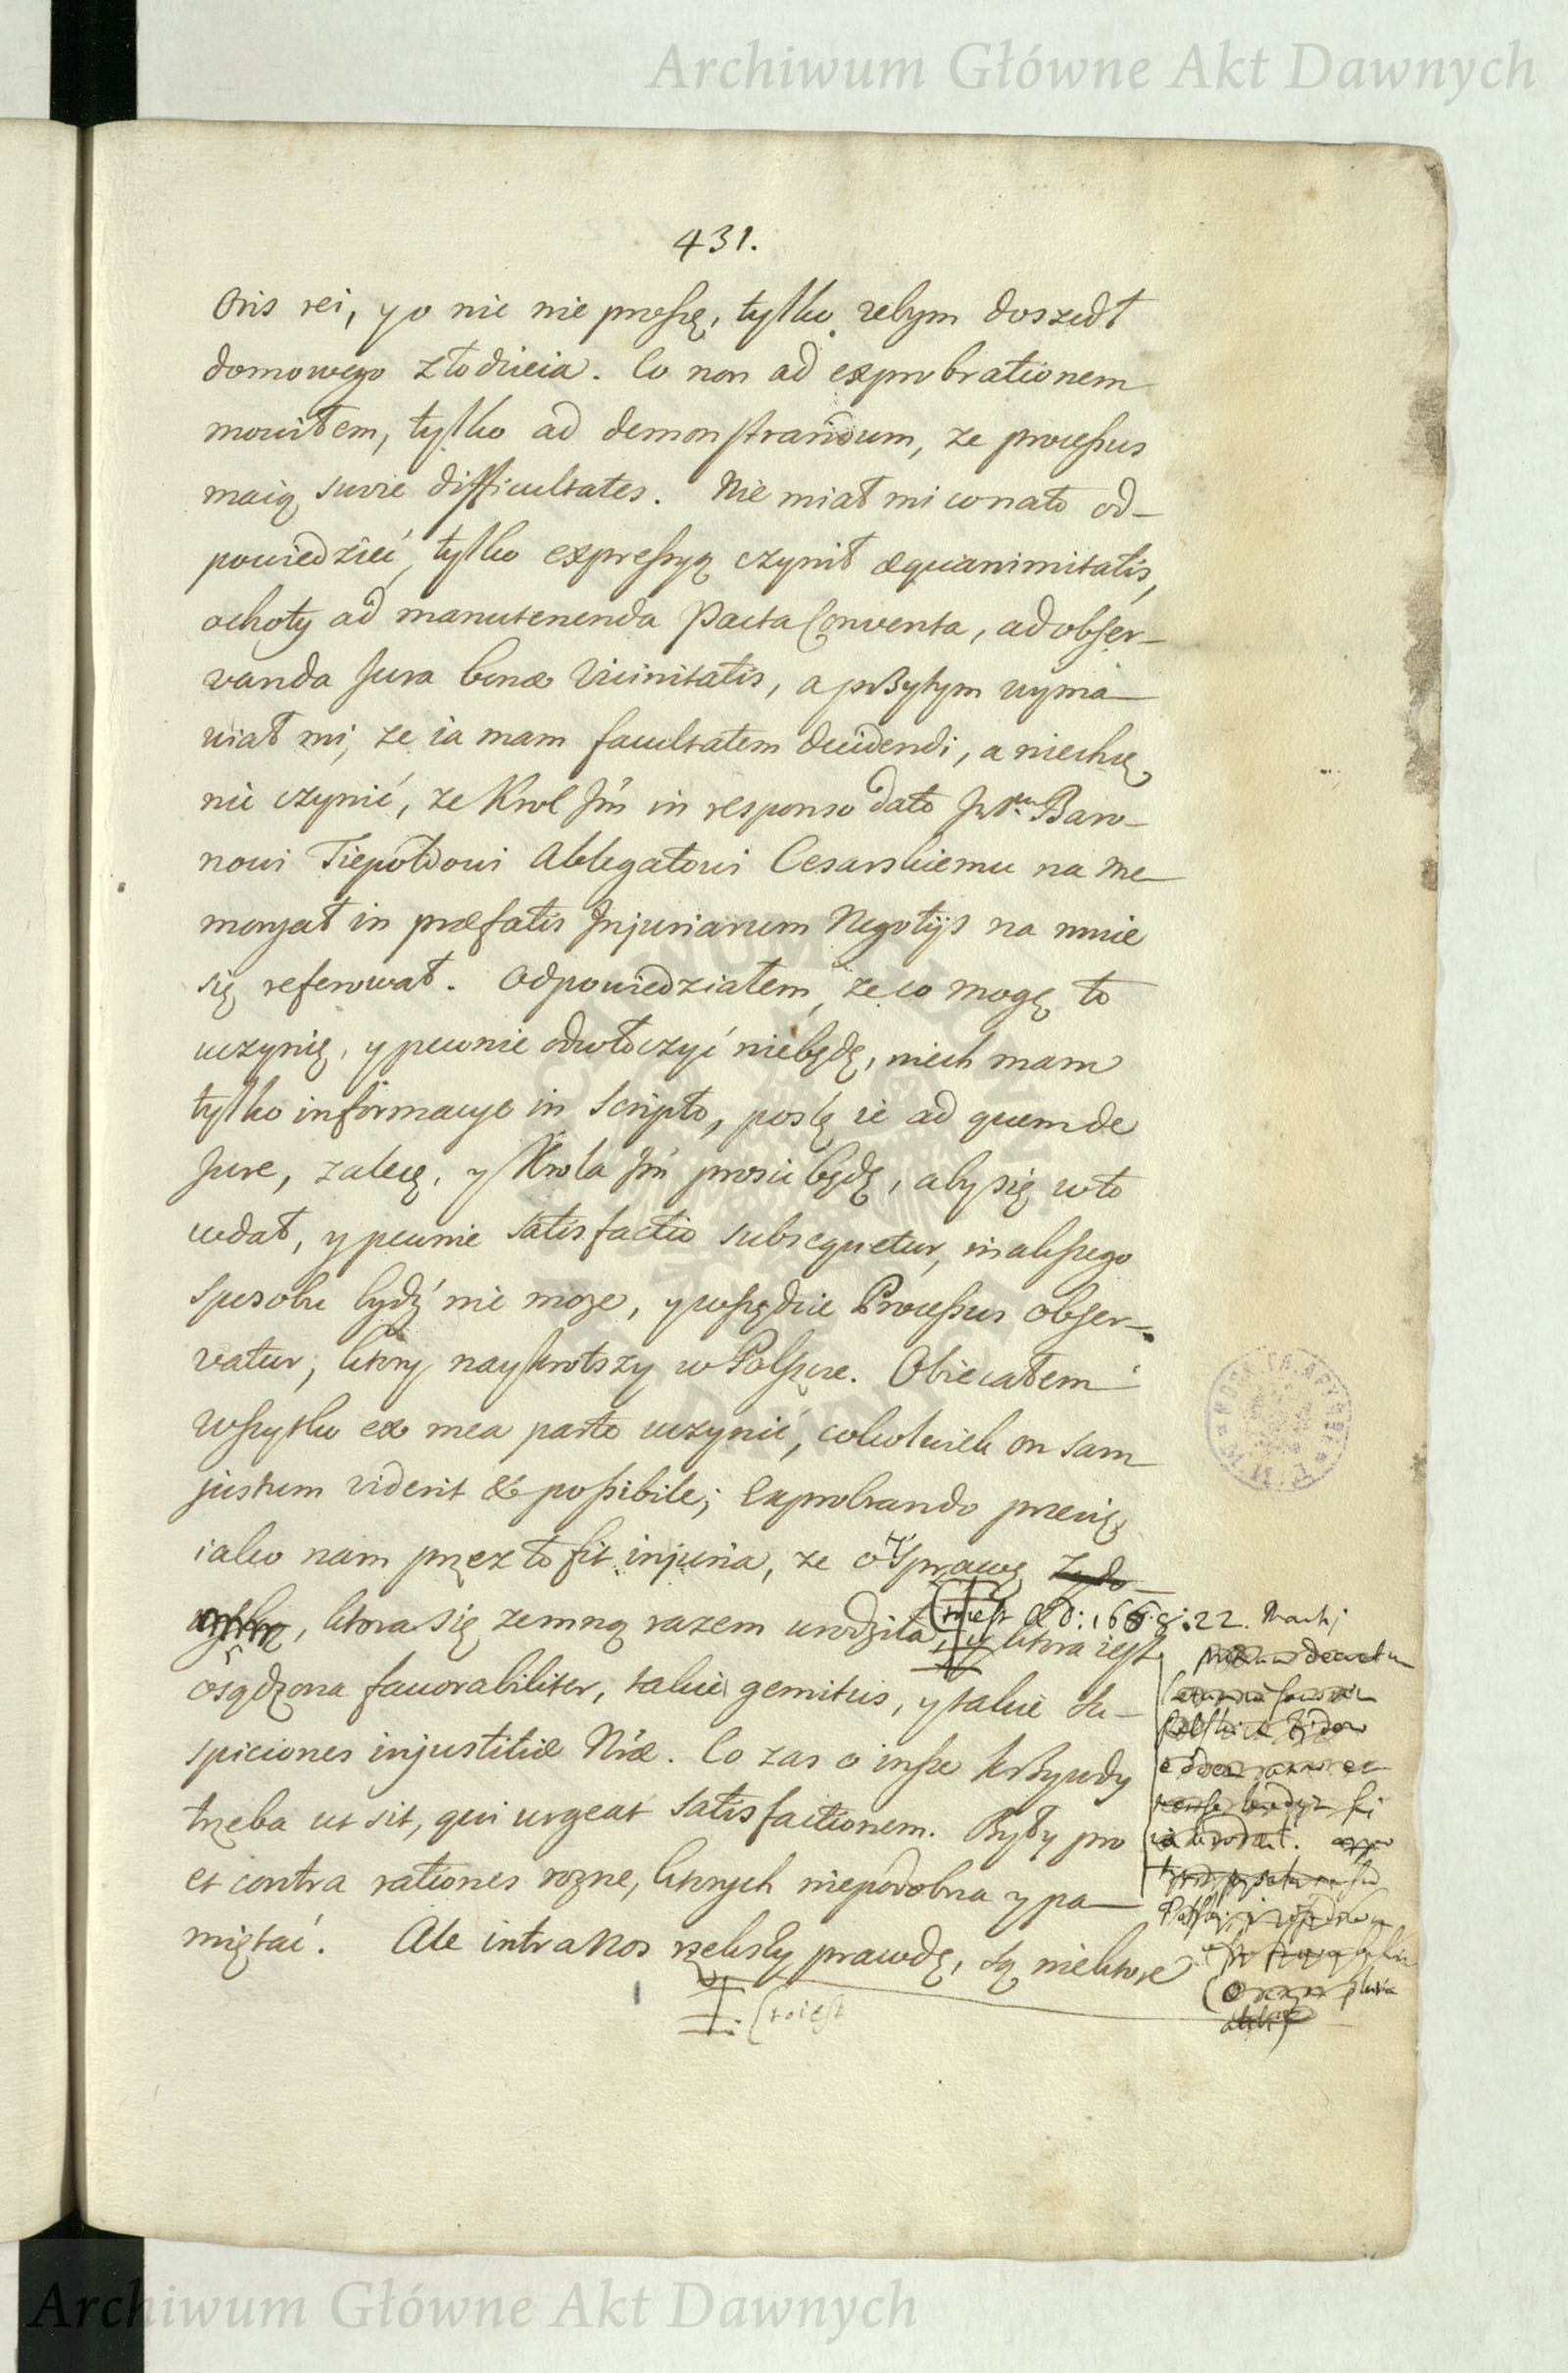 Archiwum Główne Akt Dawnych
431.
Oris rei, y o nic nie proszę, tylko zebym doszedł
domowego złodzieia. Co non ad exprobrationem
mowiłem, tylko ad demonstrandum, ze processus
maią swoie difficultates. Nie miał mi co na to od-
powiedzieć, tylko expressyą czynił æquanimitatis,
ochoty ad manutenenda Pacta Conventa, ad obser-
vanda Jura bonæ Vicinitatis, a przytym wyma-
wiał mi, ze ia mam facultatem decidendi, a niechcę
nic czynić, ze Krol Jm̃ in responso dato Baro-
nowi Tiepoldowi Ablegatowi Cesarskiemu na me-
moryał in præfatis Injuriarum Negotijs na mnie
się referował. Odpowiedziałem, ze co mogę to
uczynię, y pewnie odwłoczyć niebędę, niech mam
tylko informacye in scripto, poslę ie ad quem de
Jure, zalecę, y Krola Jm̃ prosic będę, aby się w to
wdał, y pewnie satisfactio subsequetur, inakszego
sposobu bydź nie moze, y wszędzie Processus obser-
vatur, ktory naykrotszy w Polszcze. Obiecałem
wszytko ex mea parte uczynić, cokolwiek on sam
justum viderit & possibile; Exprobrando przecię
iako nam przez to fit injuria, ze o sprawę Zydo-
wską, ktora się zemną razem urodziła, y ktora iest
(to iest AD: 1668: 22. Martij
osądzona favorabiliter, takie gemitus, y takie su-
spiciones injustitiæ Nr̃æ. Co zas o insze krzywdy
trzeba ut sit, qui urgeat satisfactionem. Były pro
et contra rationes rozne, ktorych niepodobna y pa-
miętać. Ale intra Nos rzekszy prawdę, są niektore
(to iest
Archiwum Główne Akt Dawnych